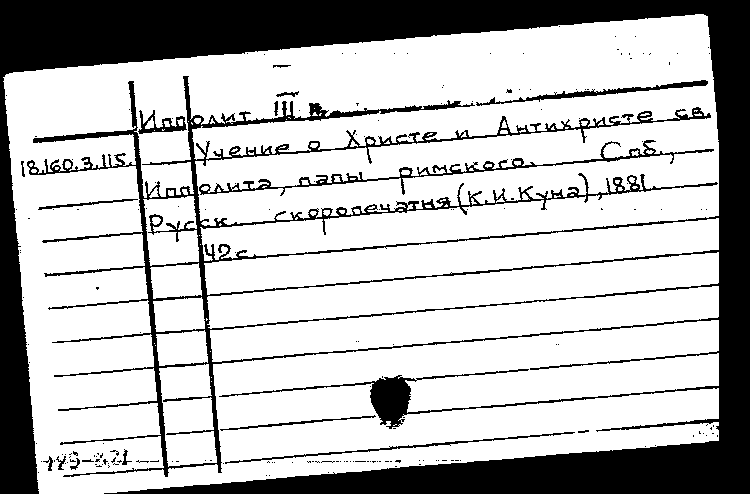 Ипполит III в.
18.160.3.115. Учение о Христе и Антихристе св.
Ипполита, папы римского. Спб.,
Русск. скоропечатня (К.И.Куна), 1881.
42 с.